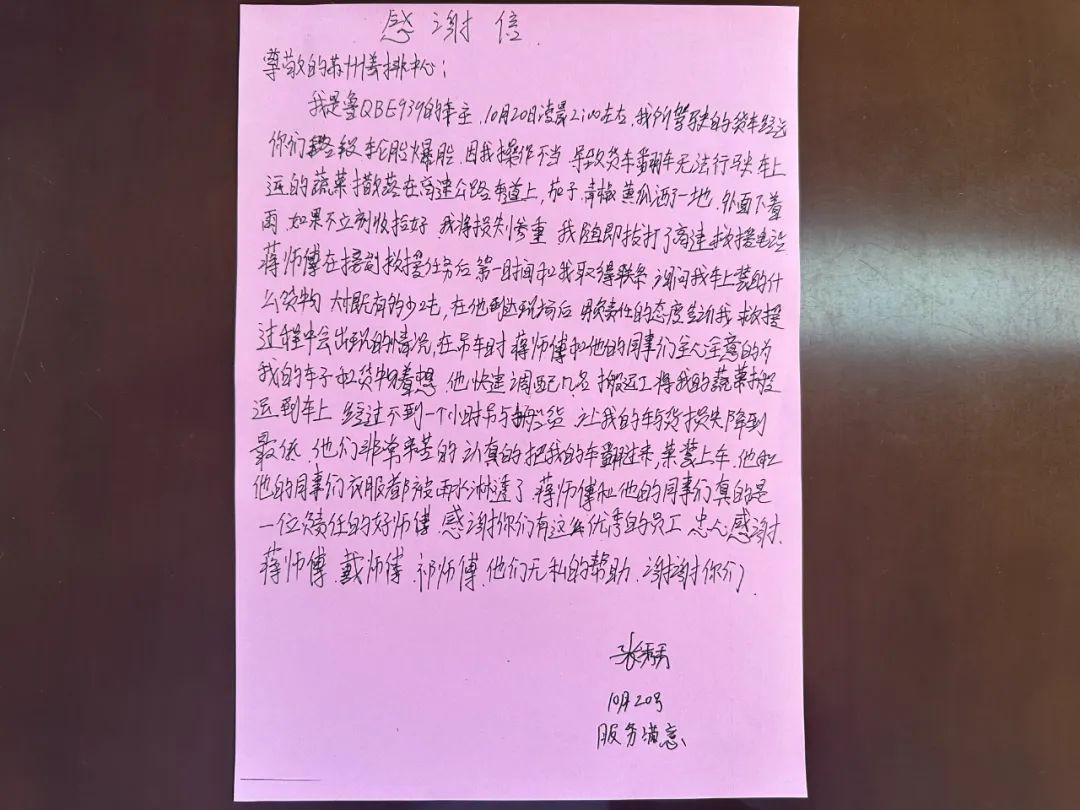 感谢信
尊敬的苏州清排中心：
我是鲁QBE939的车主，10月20日凌晨2:00左右，我所驾驶的货车经过
你们路段轮胎爆胎，因我操作不当 导致货车翻车无法行驶 车上
运的蔬菜撒落在高速公路车道上，茄子，青椒 黄瓜洒了一地，外面下着
雨，如果不立刻收拾好，我将损失惨重 我随即拔打了高速救援电话
蒋师傅在接到救援任务后 第一时间和我取得联系 询问我车上装的什
么货物 大概有多少吨，在他到达现场后 用负责任的态度告诉我 救援
过程中会出现的情况，在吊车时 蒋师傅和他的同事们全心全意的为
我的车子和货物着想，他快速调配几名搬运工将我的蔬菜搬
运到车上 经过不到一个小时吊与搬货 让我的车与货损失降到
最低 他们非常辛苦的 认真的把我的车翻过来，菜装上车，他和
他的同事们衣服都被雨水淋透了，蒋师傅和他的同事们真的是
一位负责任的好师傅，感谢你们有这么优秀的员工，忠心感谢，
蒋师傅、戴师傅、祁师傅，他们无私的帮助，谢谢你们
张
10月20号
服务满意